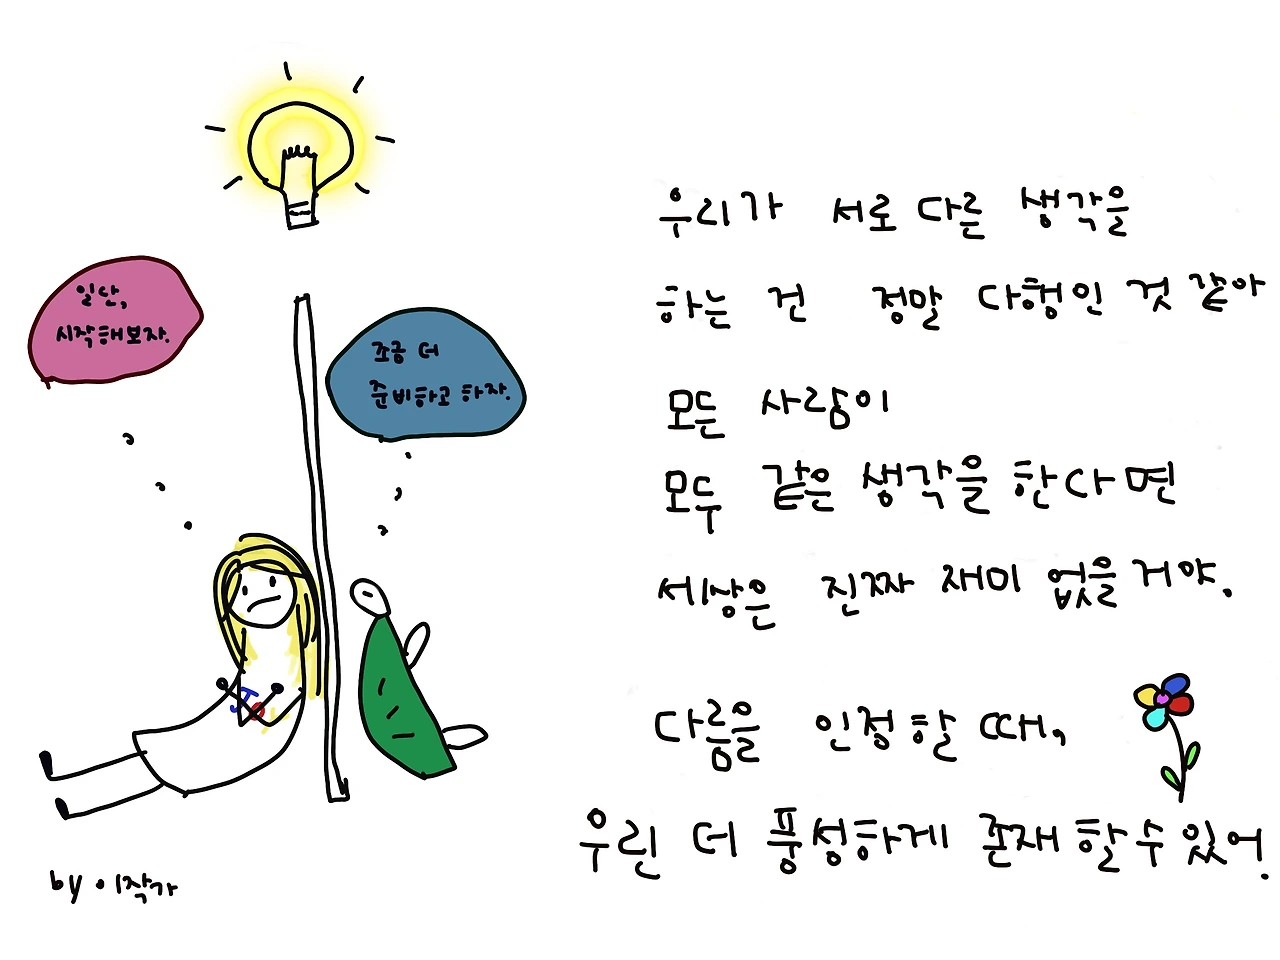 일단,
시작해보자.
조금 더
준비하고 하자.
우리가 서로 다른 생각을
하는 건 정말 다행인 것 같아
모든 사람이
모두 같은 생각을 한다면
세상은 진짜 재미 없을거야.
다름을 인정할 때,
우린 더 풍성하게 존재할수있어.
by 이작가